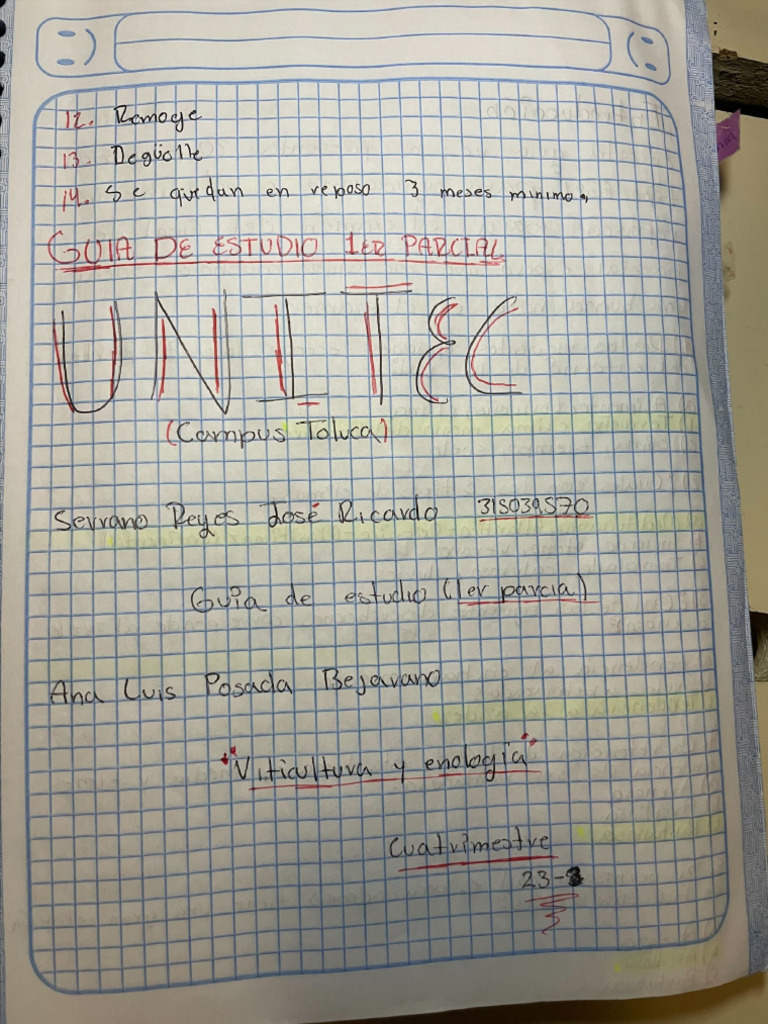 12. Remoge
13. Degüolle
14. Se quedan en reposo 3 meses minimo.
GUIA DE ESTUDIO 1ER PARCIAL
UNITEC
(Campus Toluca)
Serrano Reyes José Ricardo 315039570
Guía de estudio (1er parcial)
Ana Luis Posada Bejarano
"Viticultura y enología"
Cuatrimestre
23-3